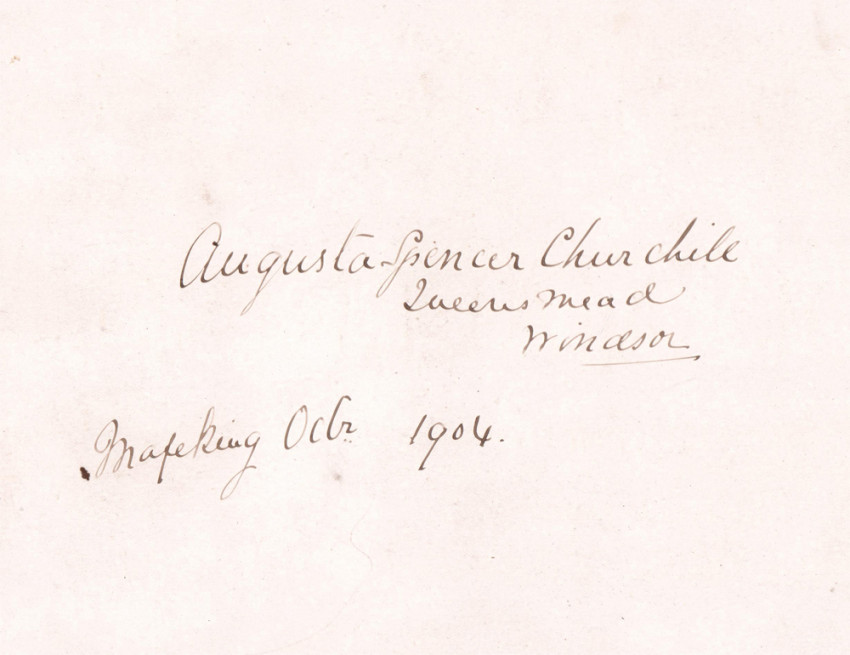 Augusta Spencer Churchill
Queensmead
Windsor
Mafeking Octbr 1904.